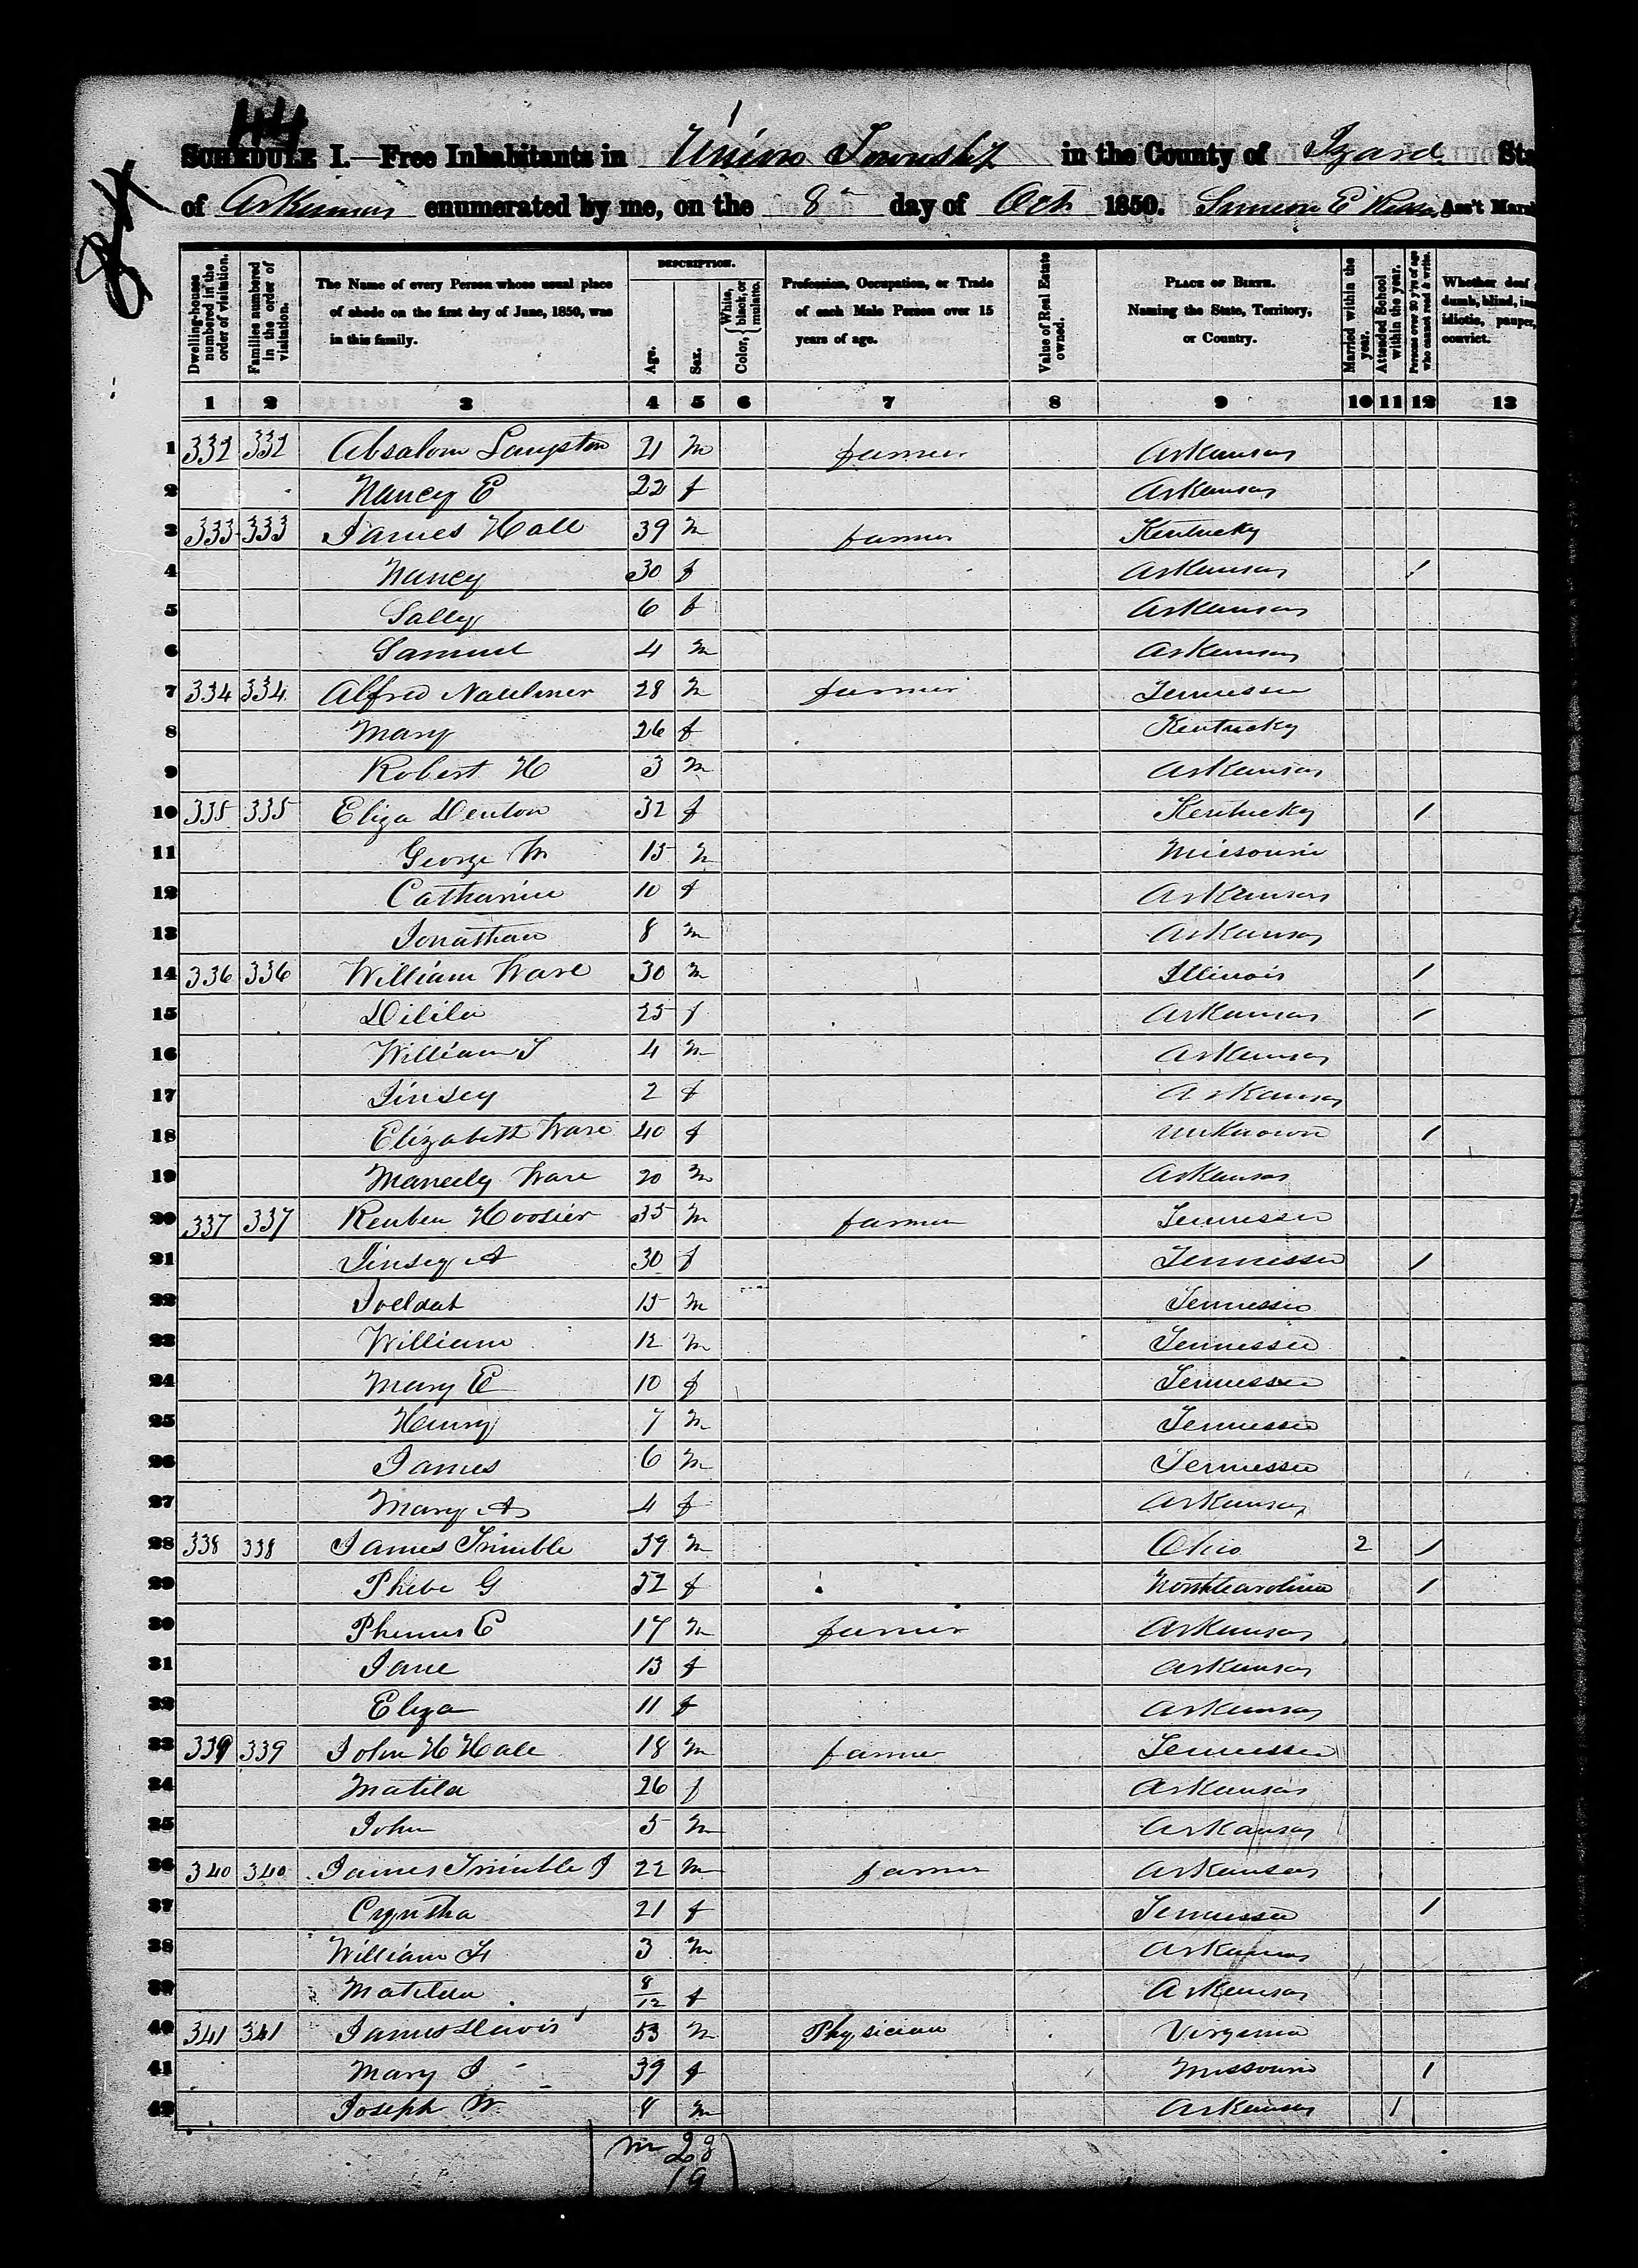 44
1
SCHEDULE I.—Free Inhabitants in Union Township in the County of Izard Sta
of Arkansas enumerated by me, on the 8" day of Oct 1850. Simeon E Ass't Mars
Dwelling-houses numbered in the order of visitation.
Families numbered in the order of visitation.
The Name of every Person whose usual place of abode on the first day of June, 1850, was in this family.
DESCRIPTION.
Age.
Sex.
Color, White, black, or mulatto.
Profession, Occupation, or Trade of each Male Person over 15 years of age.
Value of Real Estate owned.
PLACE OF BIRTH. Naming the State, Territory, or Country.
Married within the year.
Attended School within the year.
Persons over 20 y'rs of age who cannot read & write.
Whether deaf dumb, blind, in idiotic, pauper, convict.
1 2 3 4 5 6 7 8 9 10 11 12 13
1 332 332 Absalom Langston 21 m farmer Arkansas
2 Nancy E 22 f Arkansas
3 333 333 James Hall 39 m farmer Kentucky
4 Nancy 30 f Arkansas /
5 Sally 6 f Arkansas
6 Samuel 4 m Arkansas
7 334 334 Alfred 28 m farmer Tennessee
8 Mary 26 f Kentucky
9 Robert H 3 m Arkansas
10 335 335 Eliza Denton 32 f Kentucky /
11 George M 15 m Missouri
12 Catharine 10 f Arkansas
13 Jonathan 8 m Arkansas
14 336 336 William Ware 30 m Illinois /
15 Dilila 25 f Arkansas /
16 William J 4 m Arkansas
17 Jinsey 2 f Arkansas
18 Elizabeth Ware 40 f unknown /
19 Ware 20 m Arkansas
20 337 337 Reuben Hoosier 35 m farmer Tennessee
21 Jinsey A 30 f Tennessee /
22 15 m Tennessee
23 William 12 m Tennessee
24 Mary E 10 f Tennessee
25 Henry 7 m Tennessee
26 James 6 m Tennessee
27 Mary A 4 f Arkansas
28 338 338 James Trimble 59 m Ohio 2 /
29 Phebe G 52 f North Carolina /
30 E 17 m farmer Arkansas
31 Jane 13 f Arkansas
32 Eliza 11 f Arkansas
33 339 339 John H Hall 18 m farmer Tennessee
34 Matila 26 f Arkansas
35 John 5 m Arkansas
36 340 340 James Trimble J 22 m farmer Arkansas
37 Cyntha 21 f Tennessee /
38 William H 3 m Arkansas
39 Matilda 8/12 f Arkansas
40 341 341 James Davis 53 m Physician Virginia
41 Mary J 39 f Missouri /
42 Joseph W 8 m Arkansas 1
m 23
19